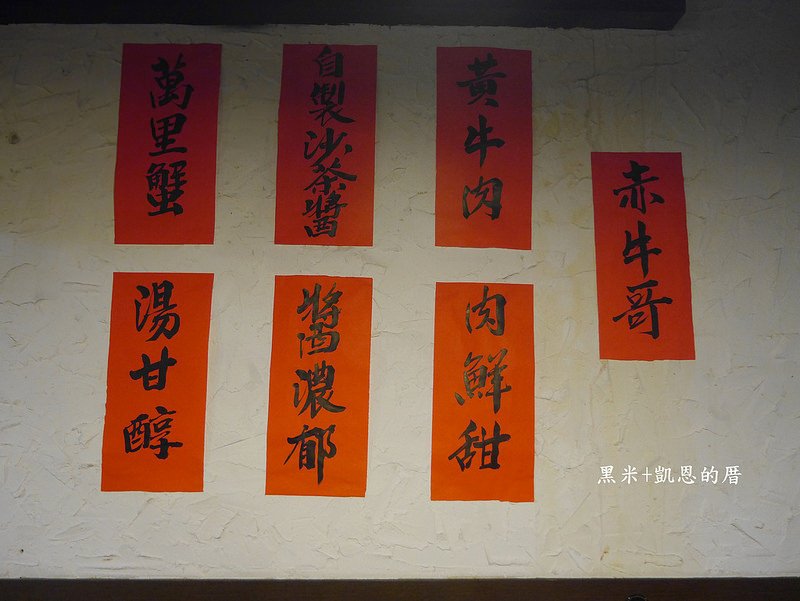 赤牛哥
黃牛肉
肉鮮甜
自製沙茶醬
醬濃郁
萬里蟹
湯甘醇
黑米+凱恩的厝